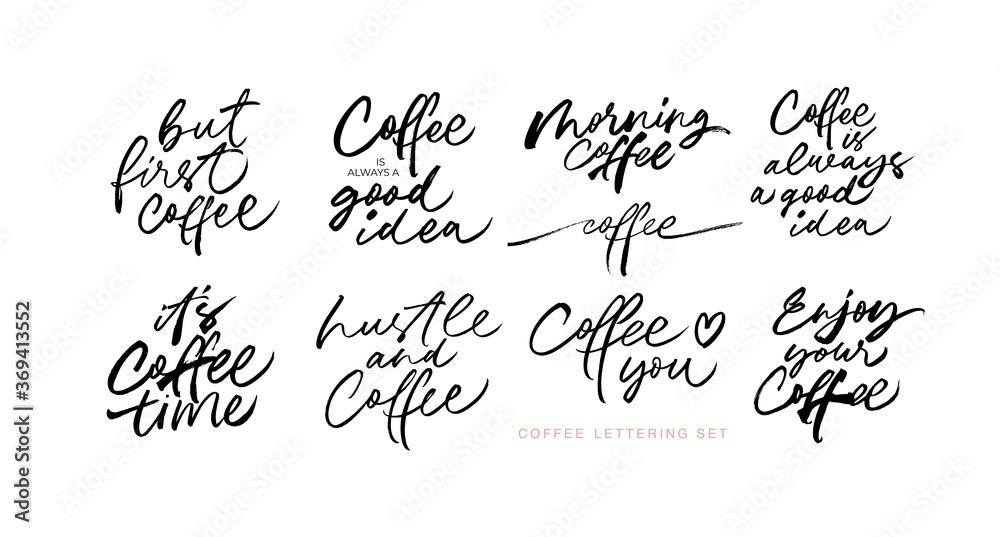 but
first
coffee
Coffee
IS
ALWAYS A
good
idea
Morning
coffee
coffee
Coffee
is
always
a good
idea
it's
Coffee
time
hustle
and
Coffee
Coffee ♡
you
Enjoy
your
Coffee
COFFEE LETTERING SET
Adobe Stock | #369413552